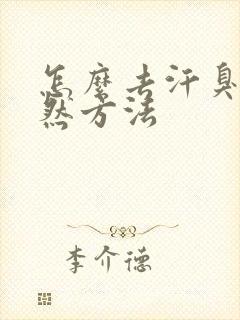 怎麽去汗臭
然方法
李介德